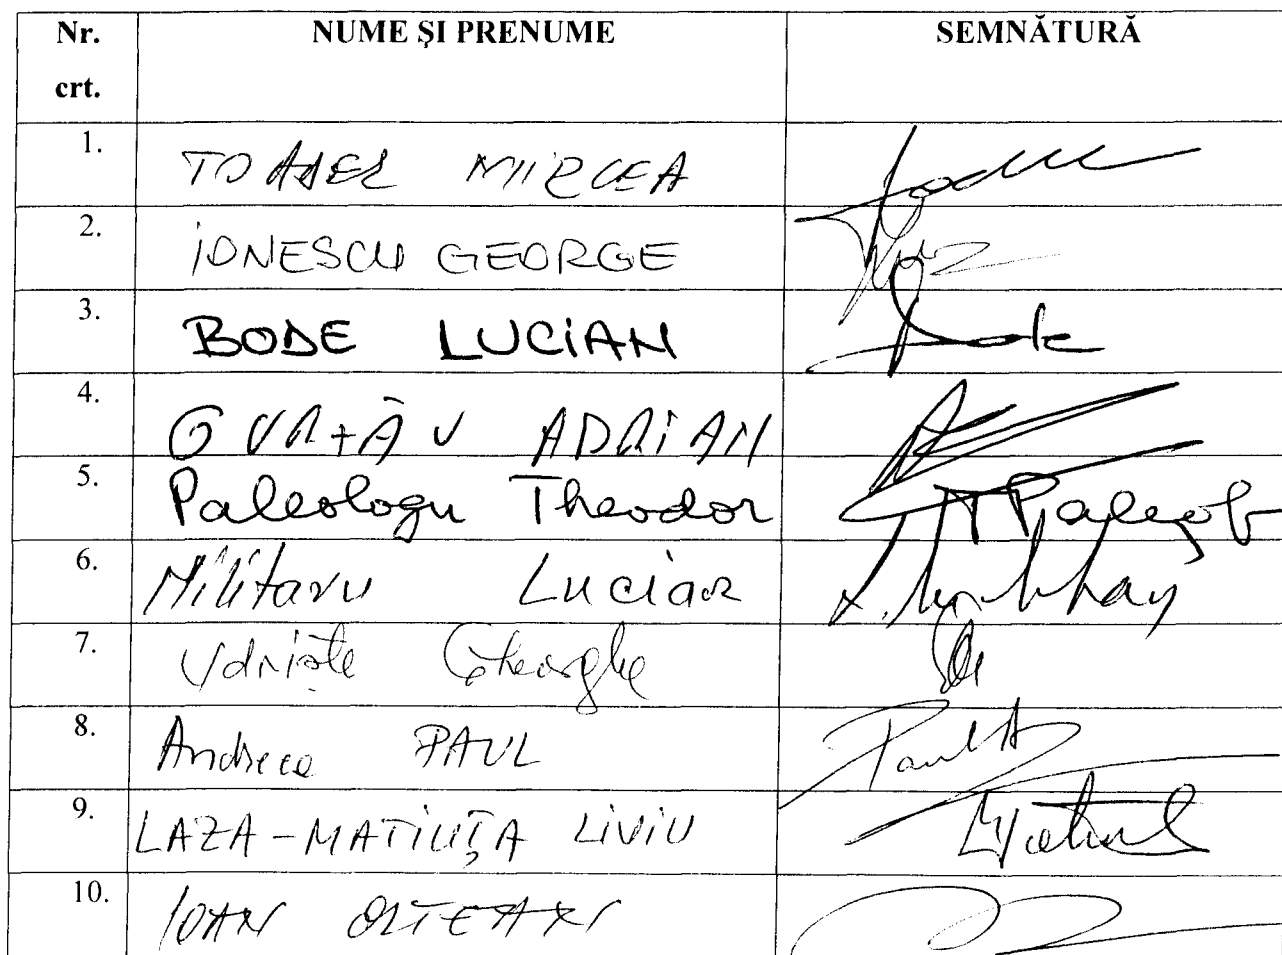 Nr. crt. NUME ŞI PRENUME SEMNĂTURĂ
1. TOADER MIRCEA
2. IONESCU GEORGE
3. BODE LUCIAN
4. GURZĂU ADRIAN
5. Paleologu Theodor
6. Militaru Lucian
7. Udriște Gheorghe
8. Andreea PAUL PaulA
9. LAZA-MATIUȚA LIVIU
10. IOAN OLTEAN